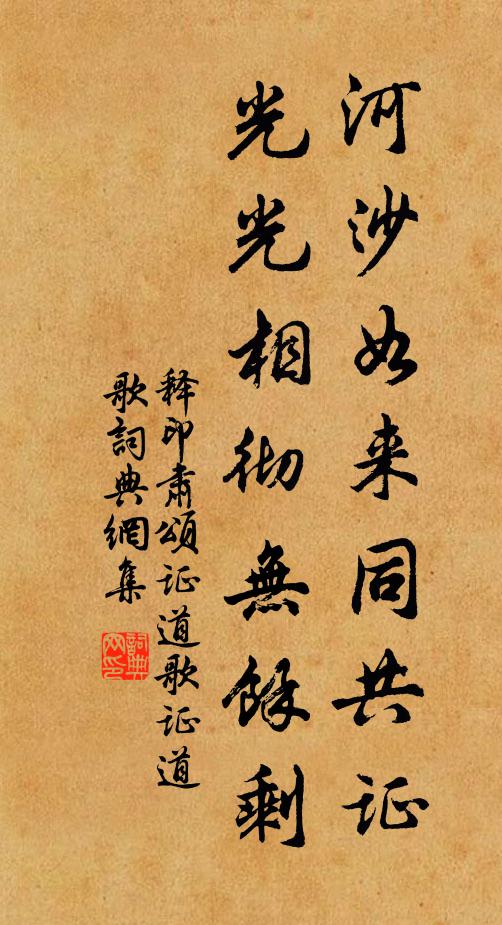 河沙如来同共证
光光相彻無餘剩
释印肃颂证道歌证道
歌詞典網集
詞典网印